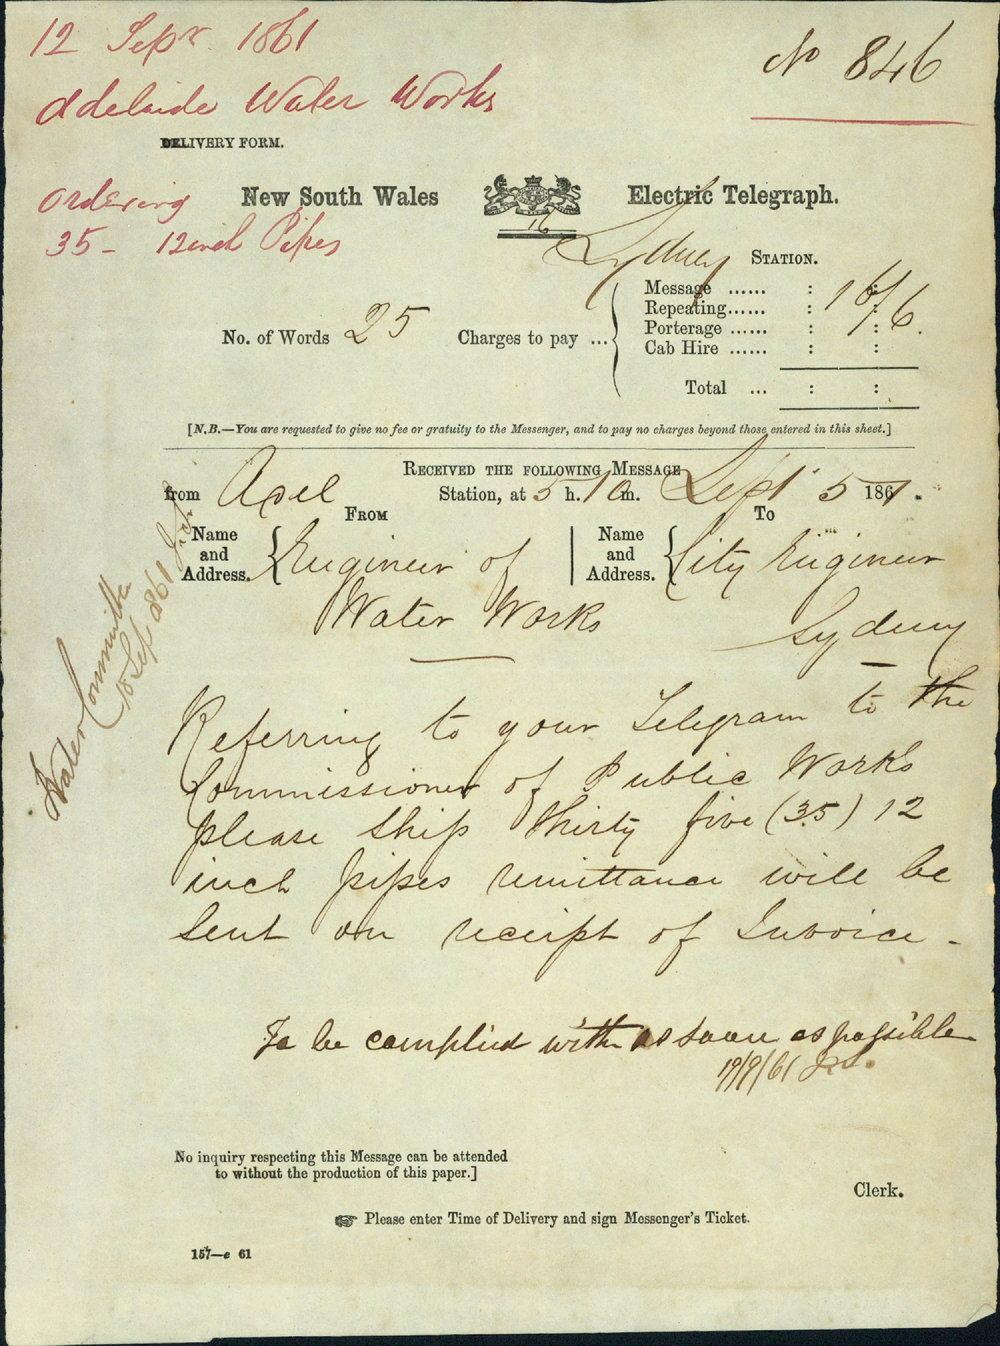 12 Sepr. 1861
No 846
Adelaide Water Works
DELIVERY FORM.
Ordering
35 - 12 inch Pipes
New South Wales Electric Telegraph.
16
Sydney STATION.
Message ...... : 16/6 :
Repeating...... : :
Porterage ...... : 1/6.
Cab Hire ...... : :
No. of Words 25 Charges to pay ...
Total ... : :
[N.B.—You are requested to give no fee or gratuity to the Messenger, and to pay no charges beyond those entered in this sheet.]
RECEIVED THE FOLLOWING MESSAGE
from Adel Station, at 5 h. 10 m. Sept 5 1861.
FROM
TO
Name and Address. Engineer of
Water Works
Name and Address. City Engineer
Sydney
Water Committee
Sep 1861
Referring to your Telegram to the
Commissioner of Public Works
please ship thirty five (35) 12
inch pipes remittance will be
sent on receipt of Invoice -
To be complied with as soon as possible
19/9/61
No inquiry respecting this Message can be attended
to without the production of this paper.]
Clerk.
☞ Please enter Time of Delivery and sign Messenger's Ticket.
157—e 61